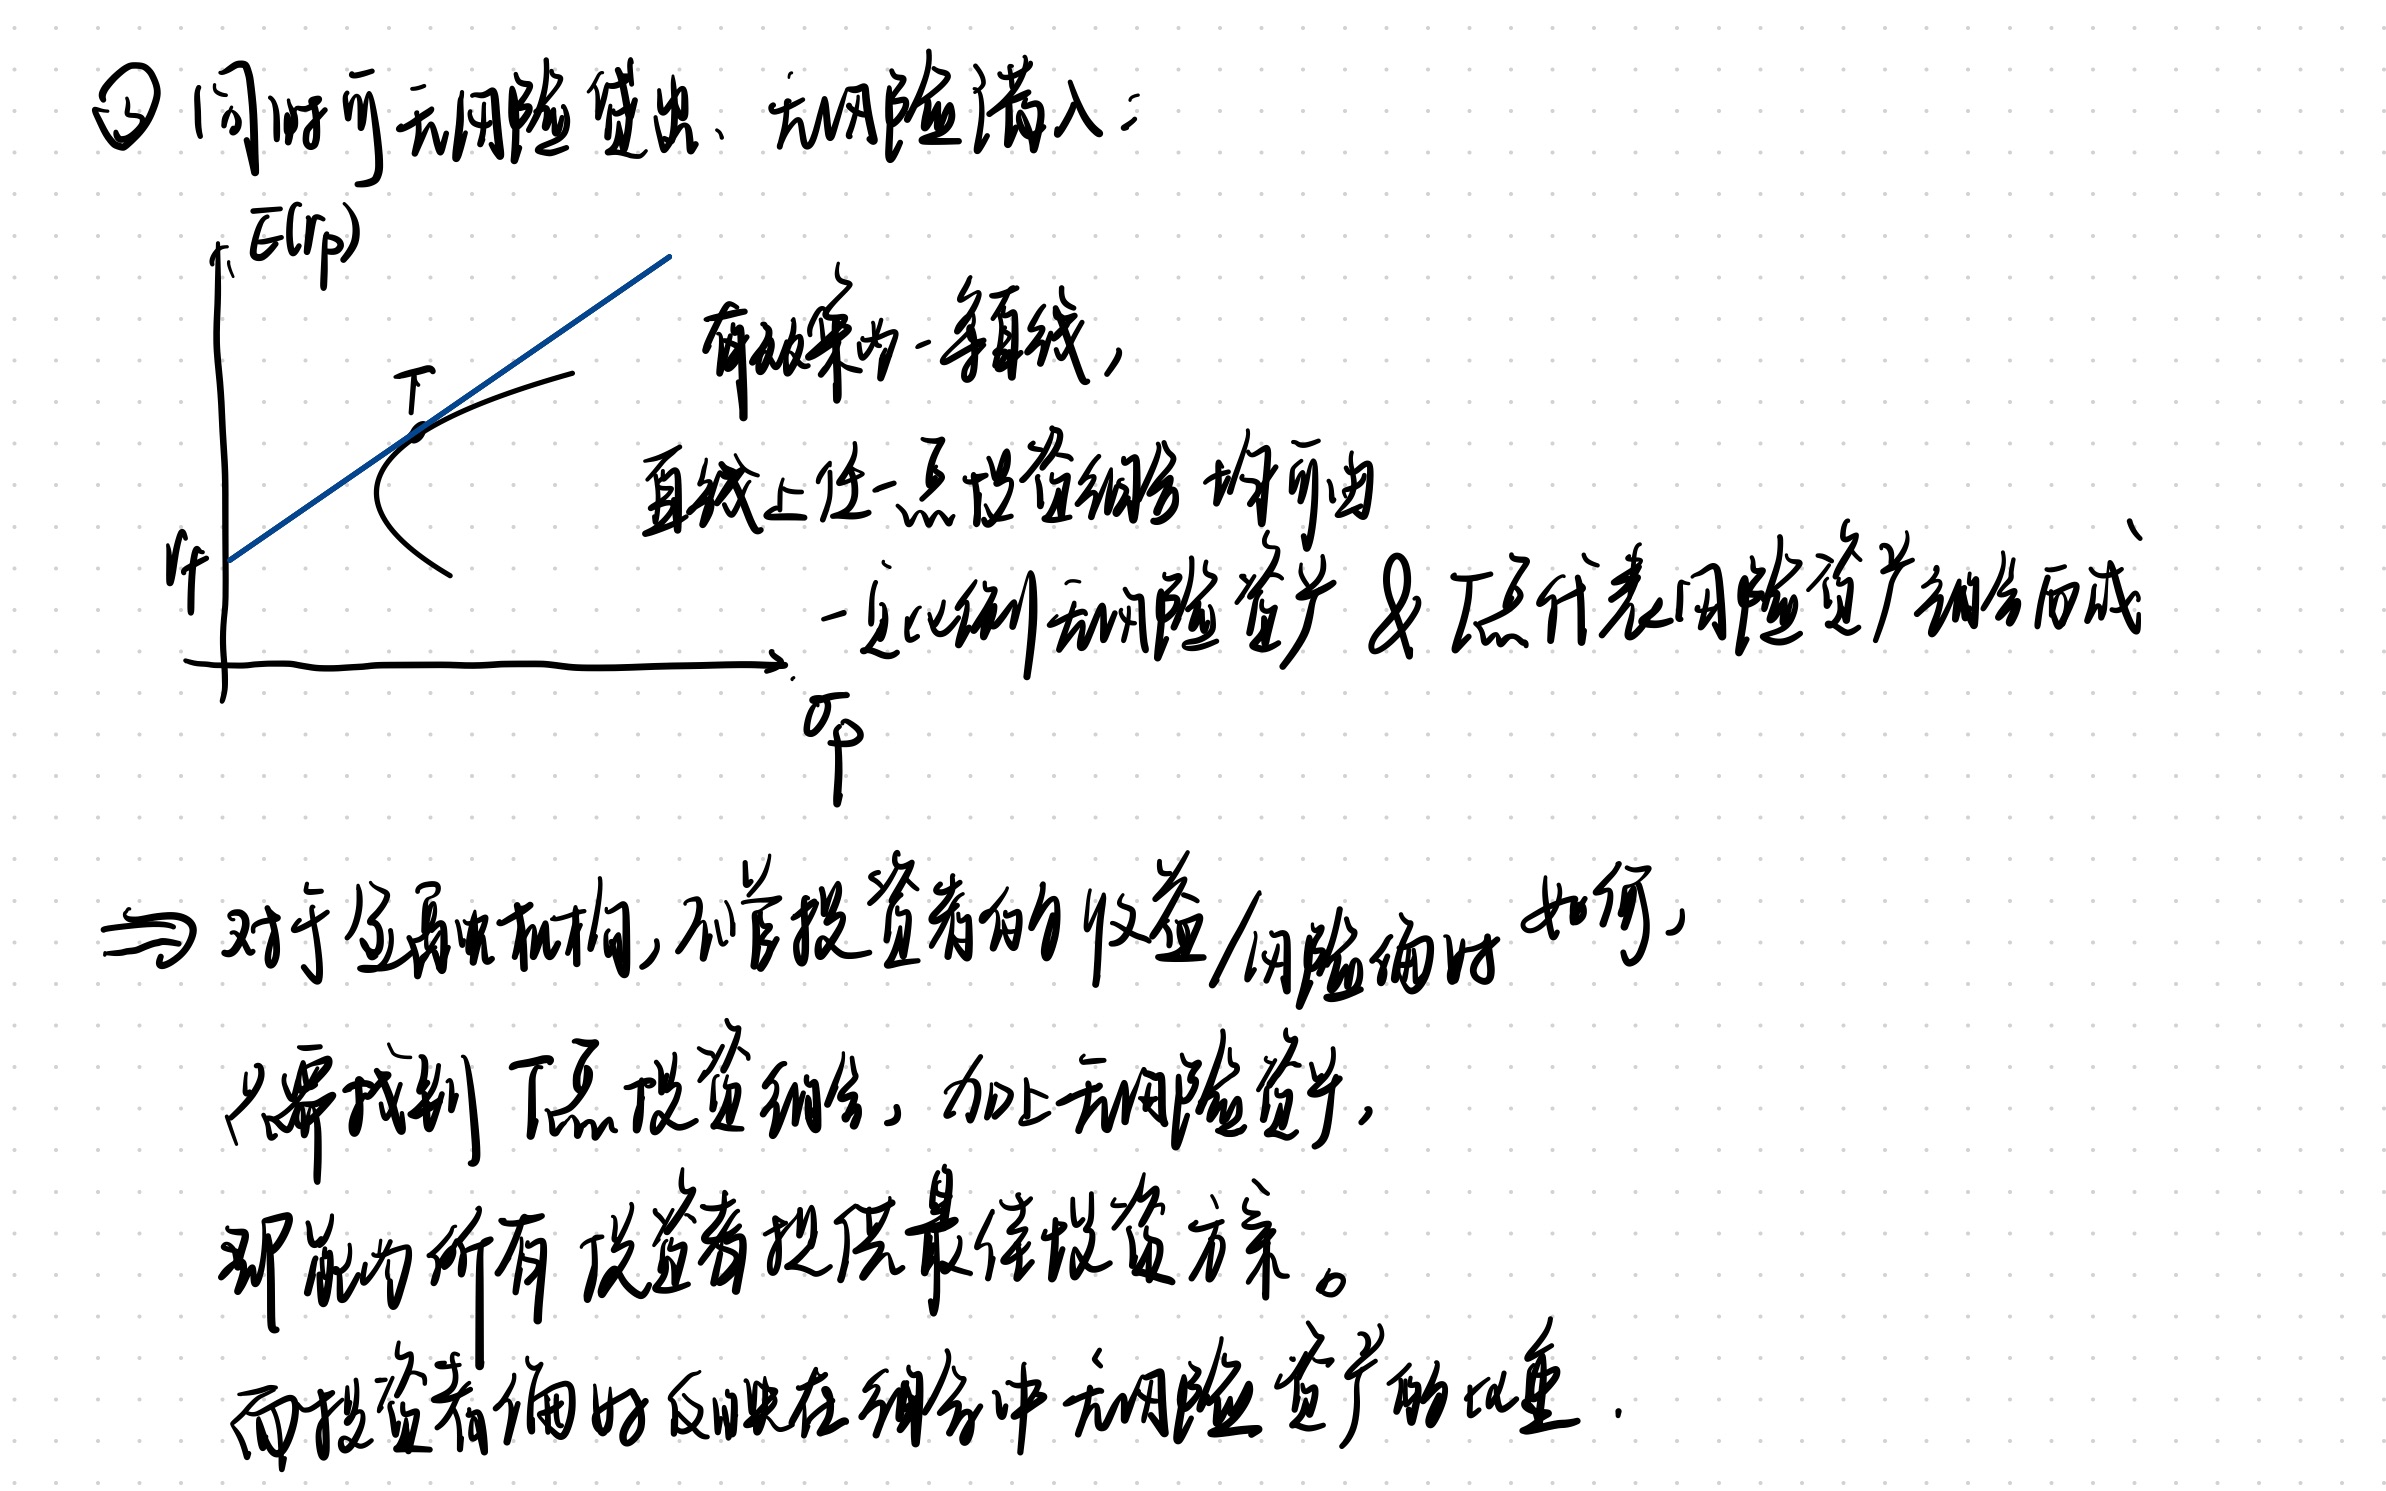 ③ 同时可无风险贷出、无风险借入:
E(rp)
有效集为一条直线,
T
直线上任一点投资组合均可由
rf
一定比例无风险资产 & T点代表风险资产组合而成
σp
⇒ 对于金融机构,不管投资者的收益/风险偏好如何,
只需找到T点投资组合,加上无风险资产,
那就为所有投资者提供最佳投资方案。
而投资者偏好反映在组合中无风险资产的比重.